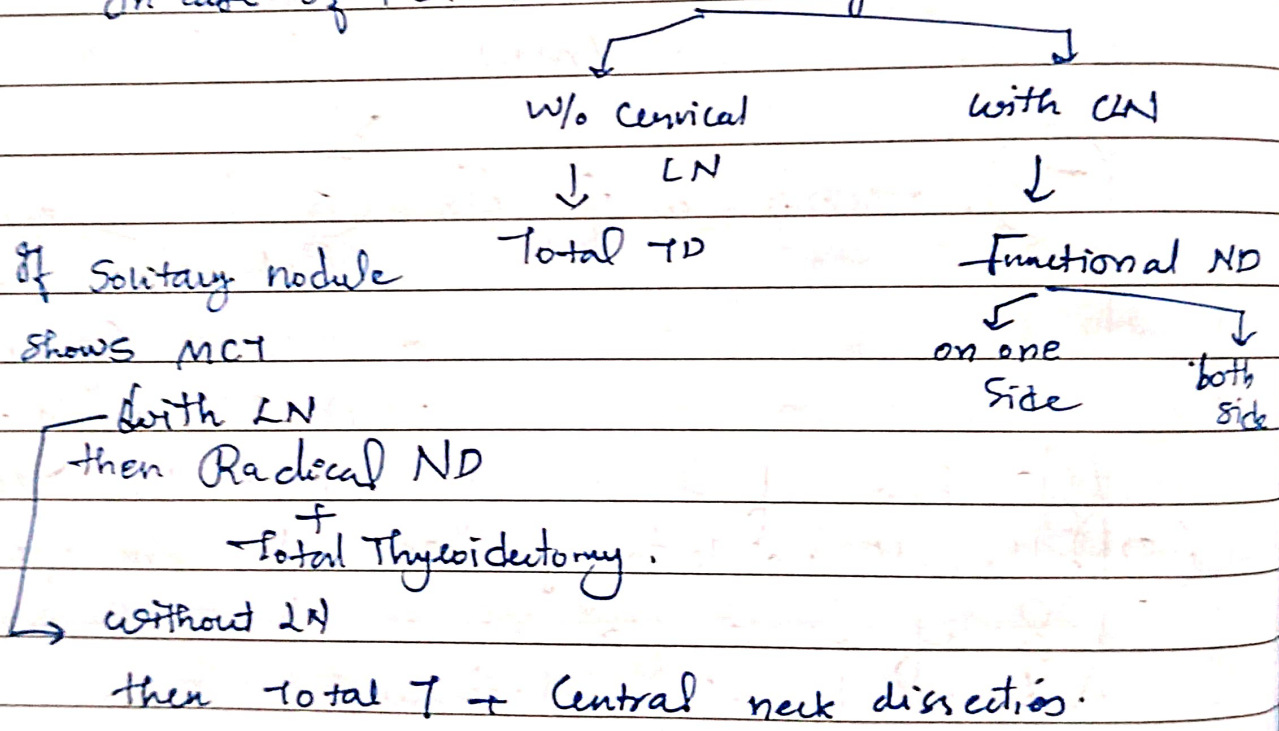 In case of
W/o Cervical LN
with CLN
Total TD
Functional ND
on one side
both side
If Solitary nodule
Shows MCT
with LN
then Radical ND
+
Total Thyroidectomy.
without LN
then Total T + Central neck dissection.